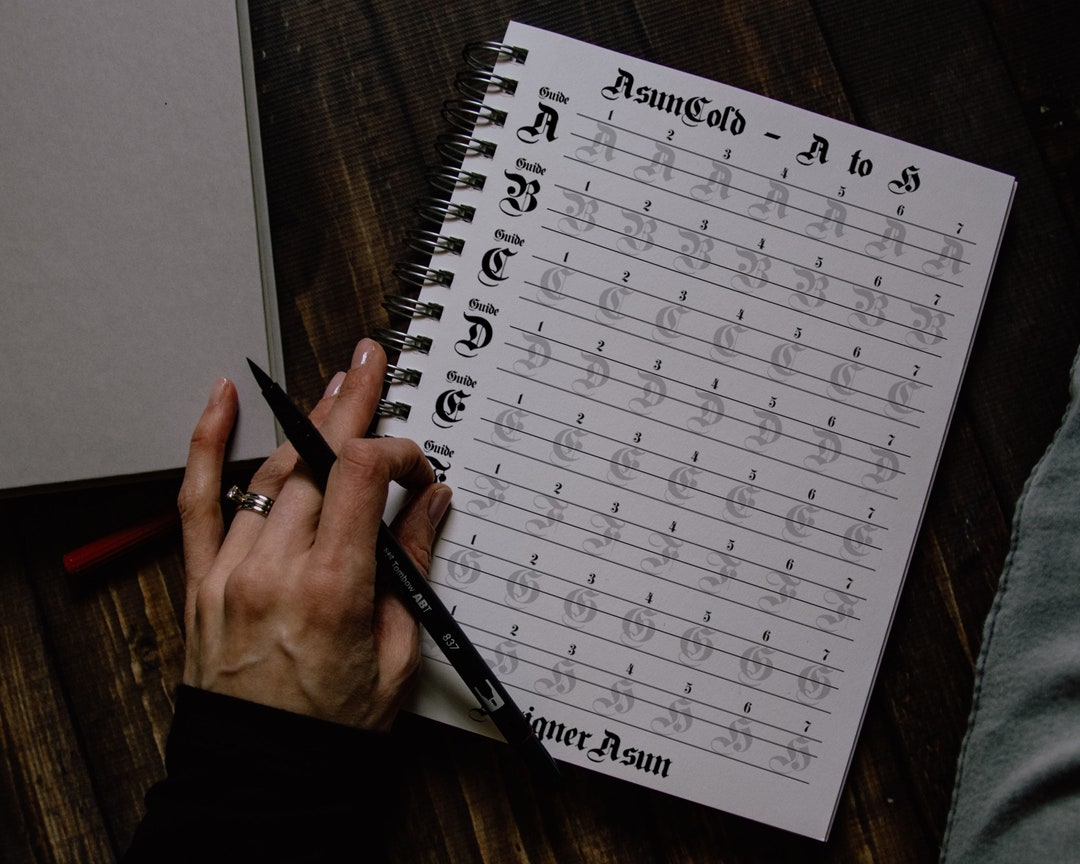 AsunCold - A to H
Guide
1 2 3 4 5 6 7
A A A A A A A A
Guide
1 2 3 4 5 6 7
B B B B B B B B
Guide
1 2 3 4 5 6 7
C C C C C C C C
Guide
1 2 3 4 5 6 7
D D D D D D D D
Guide
1 2 3 4 5 6 7
E E E E E E E E
Guide
1 2 3 4 5 6 7
F F F F F F F
1 2 3 4 5 6 7
G G G G G G G
1 2 3 4 5 6 7
H H H H H H
Asun
Tombow ABT 837